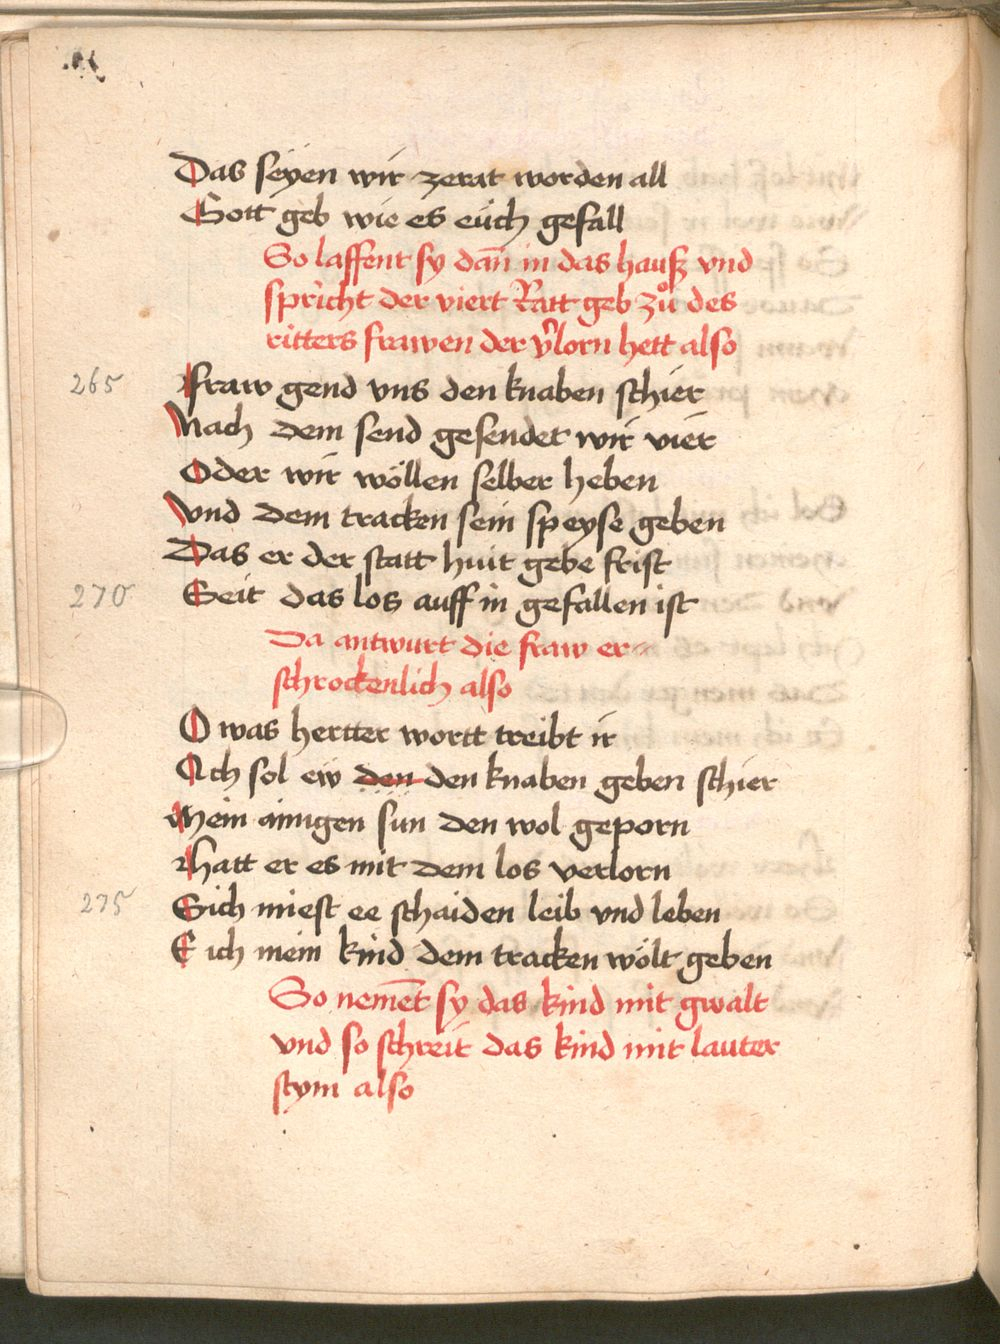 Das seyen wir zerat worden all
Gott geb wie es euch gefall
So lassent sy dañ in das hausz vnd
spricht der viert Ratt geb zů des
ritters frawen der v̓lorn hett also
265 Fraw gend vns den knaben schier
Nach dem send gesendet wir vier
Oder wir wöllen selber heben
Vnd dem tracken sein speyse geben
Das er der statt huit gebe frist
270 Seit das los auff in gefallen ist
Da antwurt die fraw er-
schrockenlich also
O was hertter wortt treibt ir
Ich sol ew den den knaben geben schier
Mein ainigen sun den wol geporn
Hatt er es mit dem los verlorn
275 Sich miest ee schaiden leib vnd leben
E ich mein kind dem tracken wölt geben
So nemẽt sy das kind mit gwalt
vnd so schreit das kind mit lauter
stym also